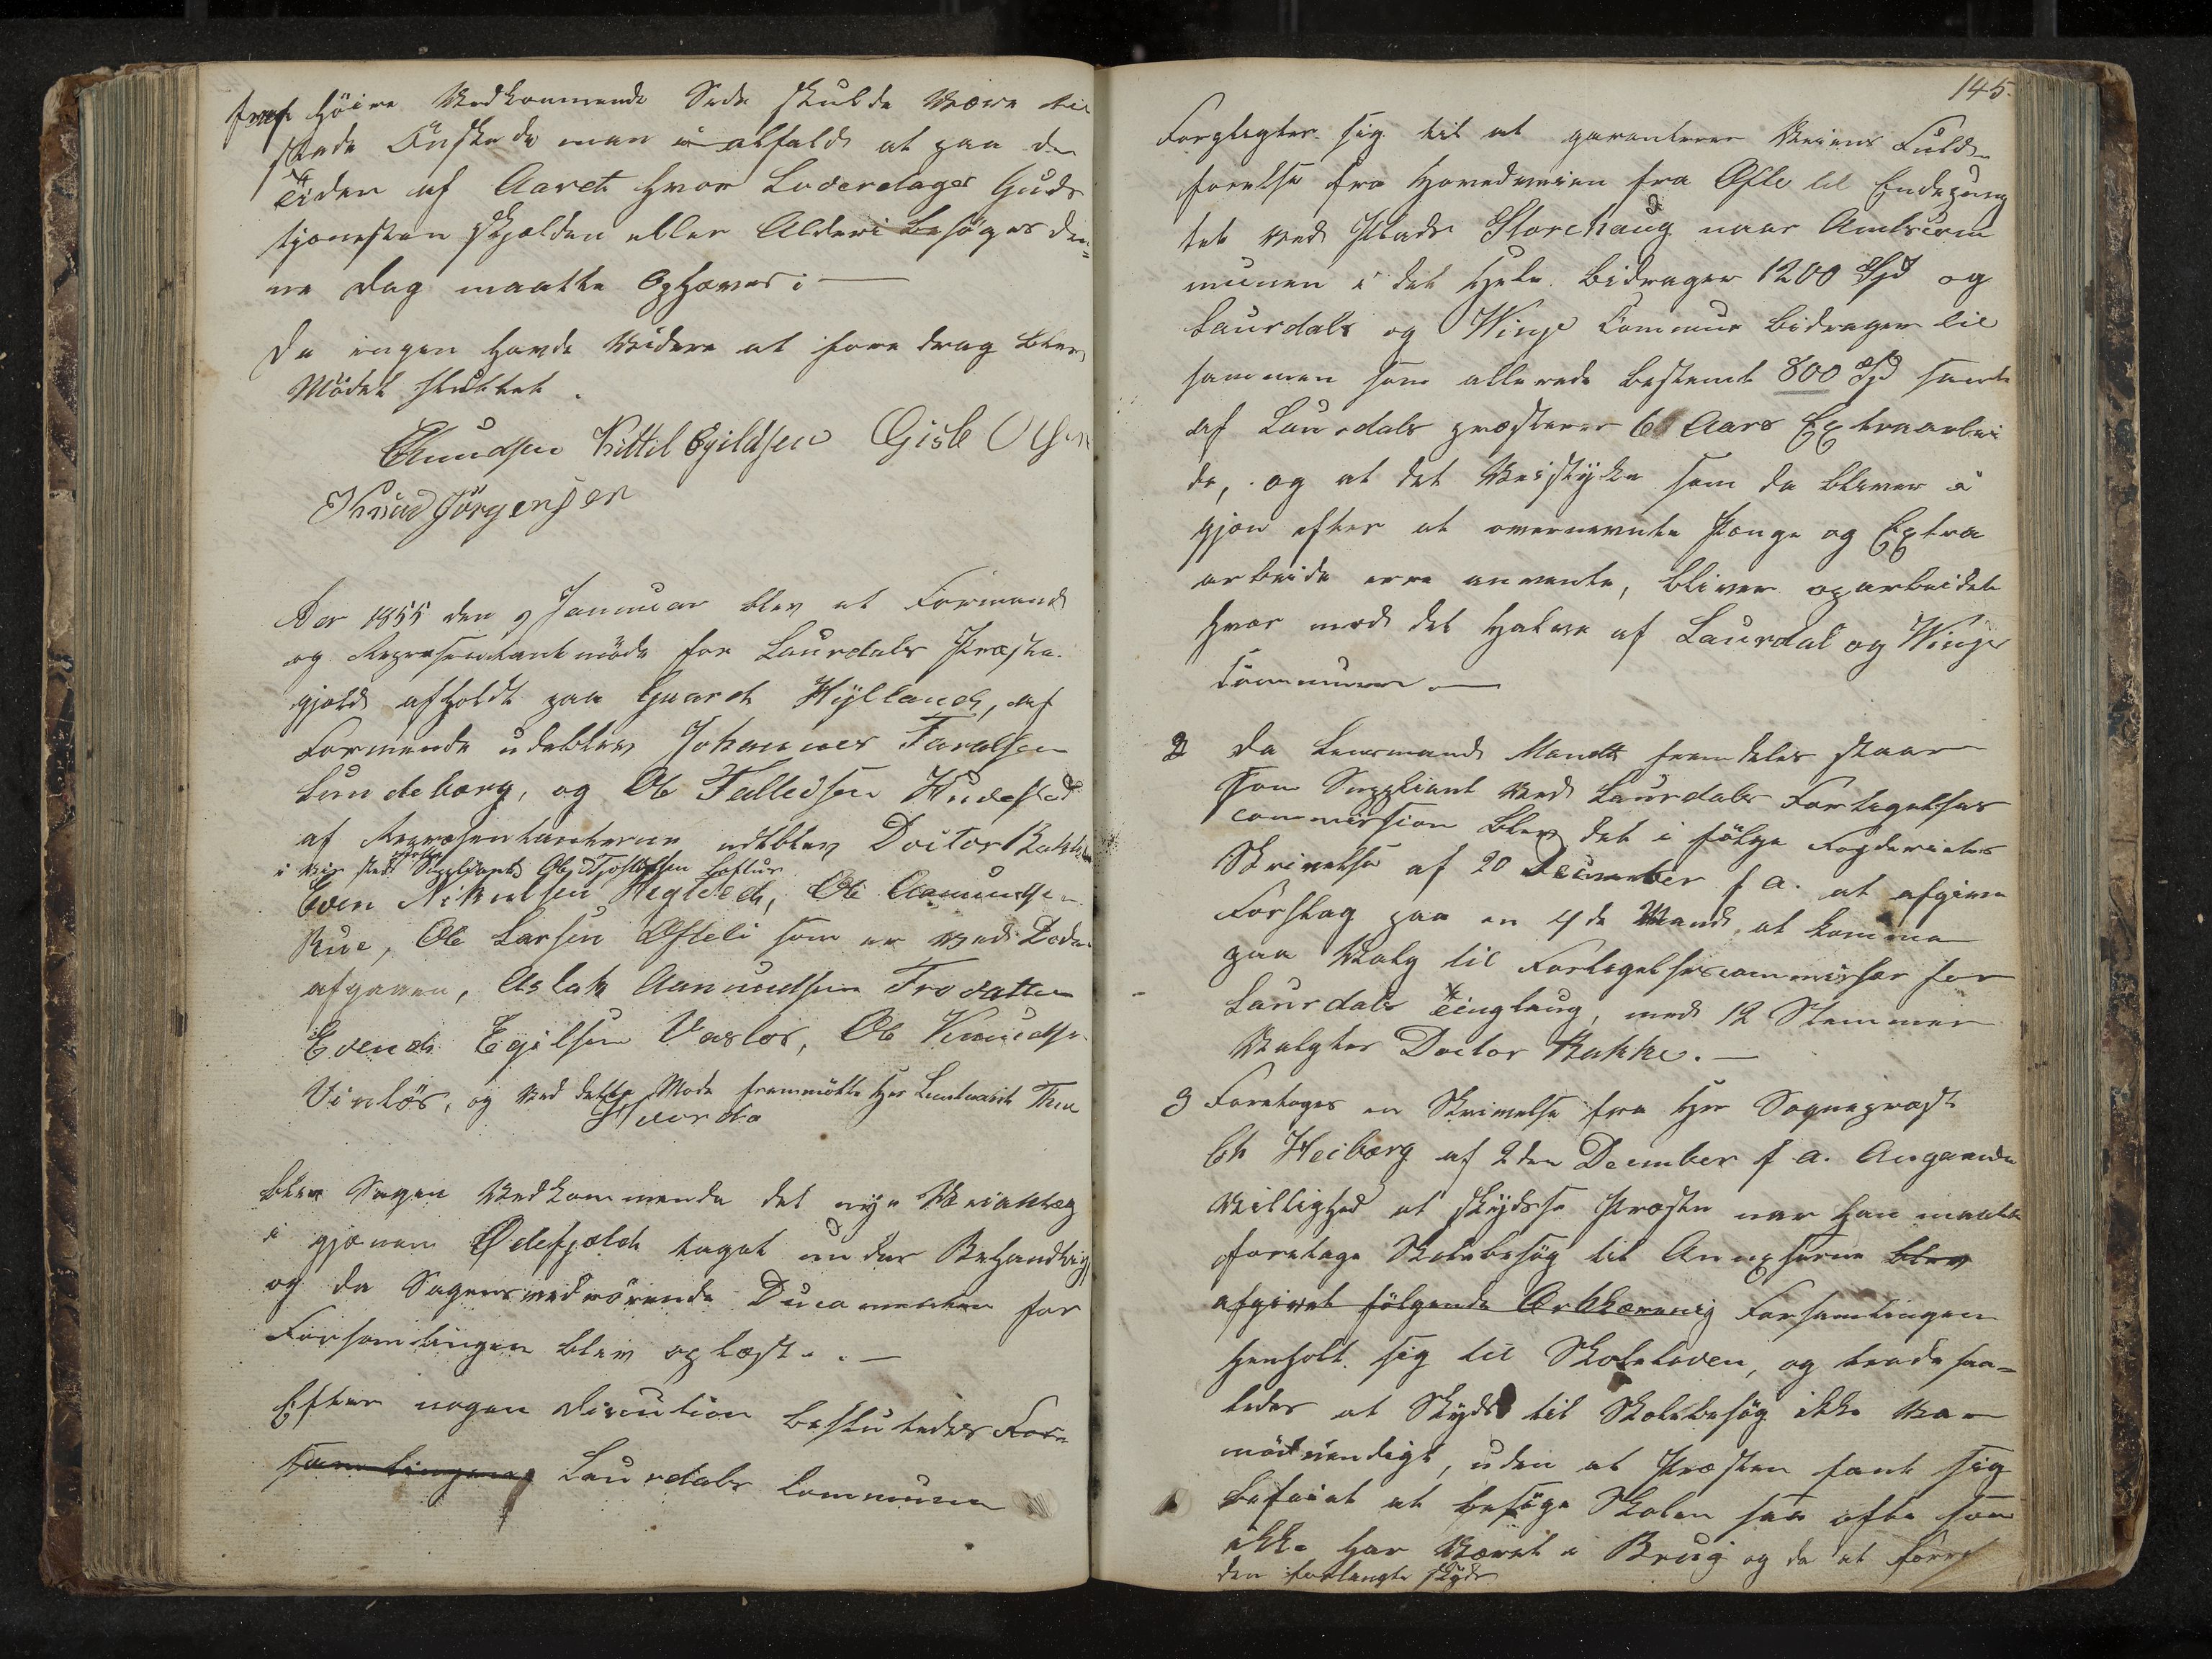 høire Vedkommende Sede skulde være til
stede Ønskede man i alfald at paa de
Tider af Aaret hvor Løverdages Guds
tjenesten sjælden eller Alderi besøges den=
ne dag maatte Ophæves i —
Da ingen havde Videre at fore drag blev
Mødet sluttet.
Knudsen Kittil Egildsen Gisle Olsen
Knud Jörgensen
Aar 1855 den 9 Januar blev et Formand
og Repræsentantmöde for Laurdals Præste
gjeld afholdt paa Gaard Hylland, af
Formænde udeblev Johannes Taralsen
Lundeborg, og Ole Talledsen Hudestad
af Repræsentanterne udeblev Doctor Bakke
i vis sted Suppliant Ole Tjostolfsen Loftur
Even Nikulsen Heglied, Ole Aanundsen
Rue, Ole Larsen Ofteli som er ved Døden
afgaaen, Aslak Aanundsen Trovatten
Evend Egilsen Vaslos, Ole Knudsen
Vinløs, og ved dette Møde fremmøtte Hr Leutnant Thue
Hvorda
blev Sagen Vedkommende det nye Veianlæg
i gjennem Ødefjeld taget under Behandling
og da Sagens vedrørende Ducomenter for
Forsamlingen blev oplæst. —
Efter nogen discution besluttedes For
samlingen Laurdals Commune
145.
Forpligter sig til at garanterer Veiens Fuld
førelse fra Hovedveien fra Ofte til Endepung
tet ved Plads Storehaug naar Amtscom
munen i det Hele bidrager 1200 Spd og
Laurdals og Winje Commune bidrager til
sammen som allerede bestemt 800 Spd samt
af Laurdals præsterer 6 Aars Extraarbei
de, og at det Veistykke som da bliver i
gjen efter at ovennevnte Penge og Extra
arbeide ere anvente, bliver oparbeidet
hver med det halve af Laurdal og Winje
Communer —
2 Da Lensmand Mandt fremdeles staar
som Suppliant ved Laurdals Forligelses
commission blev det i følge Fogderiets
Skrivelse af 20 December f a. at afgive
Forslag paa en 4de Mand at komme
paa Valg til Forligelsescommissær for
Laurdals Tinglaug, med 12 Stemmer
Valgtes Doctor Bakke. —
3 Foretoges en Skrivelse fra Hr Sognepræst
Ch Heiberg af 2den December f a. Angaaende
Villighed at skydse Præsten naar han maatte
foretage Skolebesøg til Annexserne blev
afgivet følgende Erklæring Forsamlingen
henholt sig til Skoleloven, og troede saa=
ledes at Skyds til Skolebesøg ikke var
nødvendigt, uden at Præsten fant sig
beføiet at besøge Skolen saa ofte som
ikke har Været i Brug og da at
den forlangte skyds